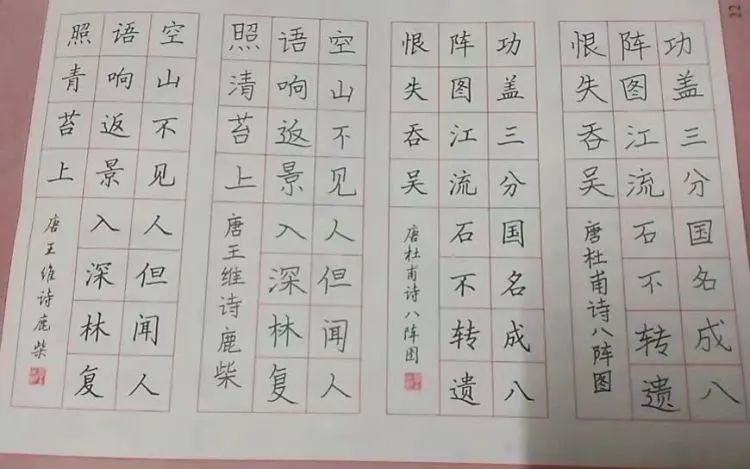 功盖三分国名成八
阵图江流石不转遗
恨失吞吴
唐杜甫诗八阵图
功盖三分国名成八
阵图江流石不转遗
恨失吞吴
唐杜甫诗八阵图
空山不见人但闻人
语响返景入深林复
照清苔上
唐王维诗鹿柴
空山不见人但闻人
语响返景入深林复
照青苔上
唐王维诗鹿柴